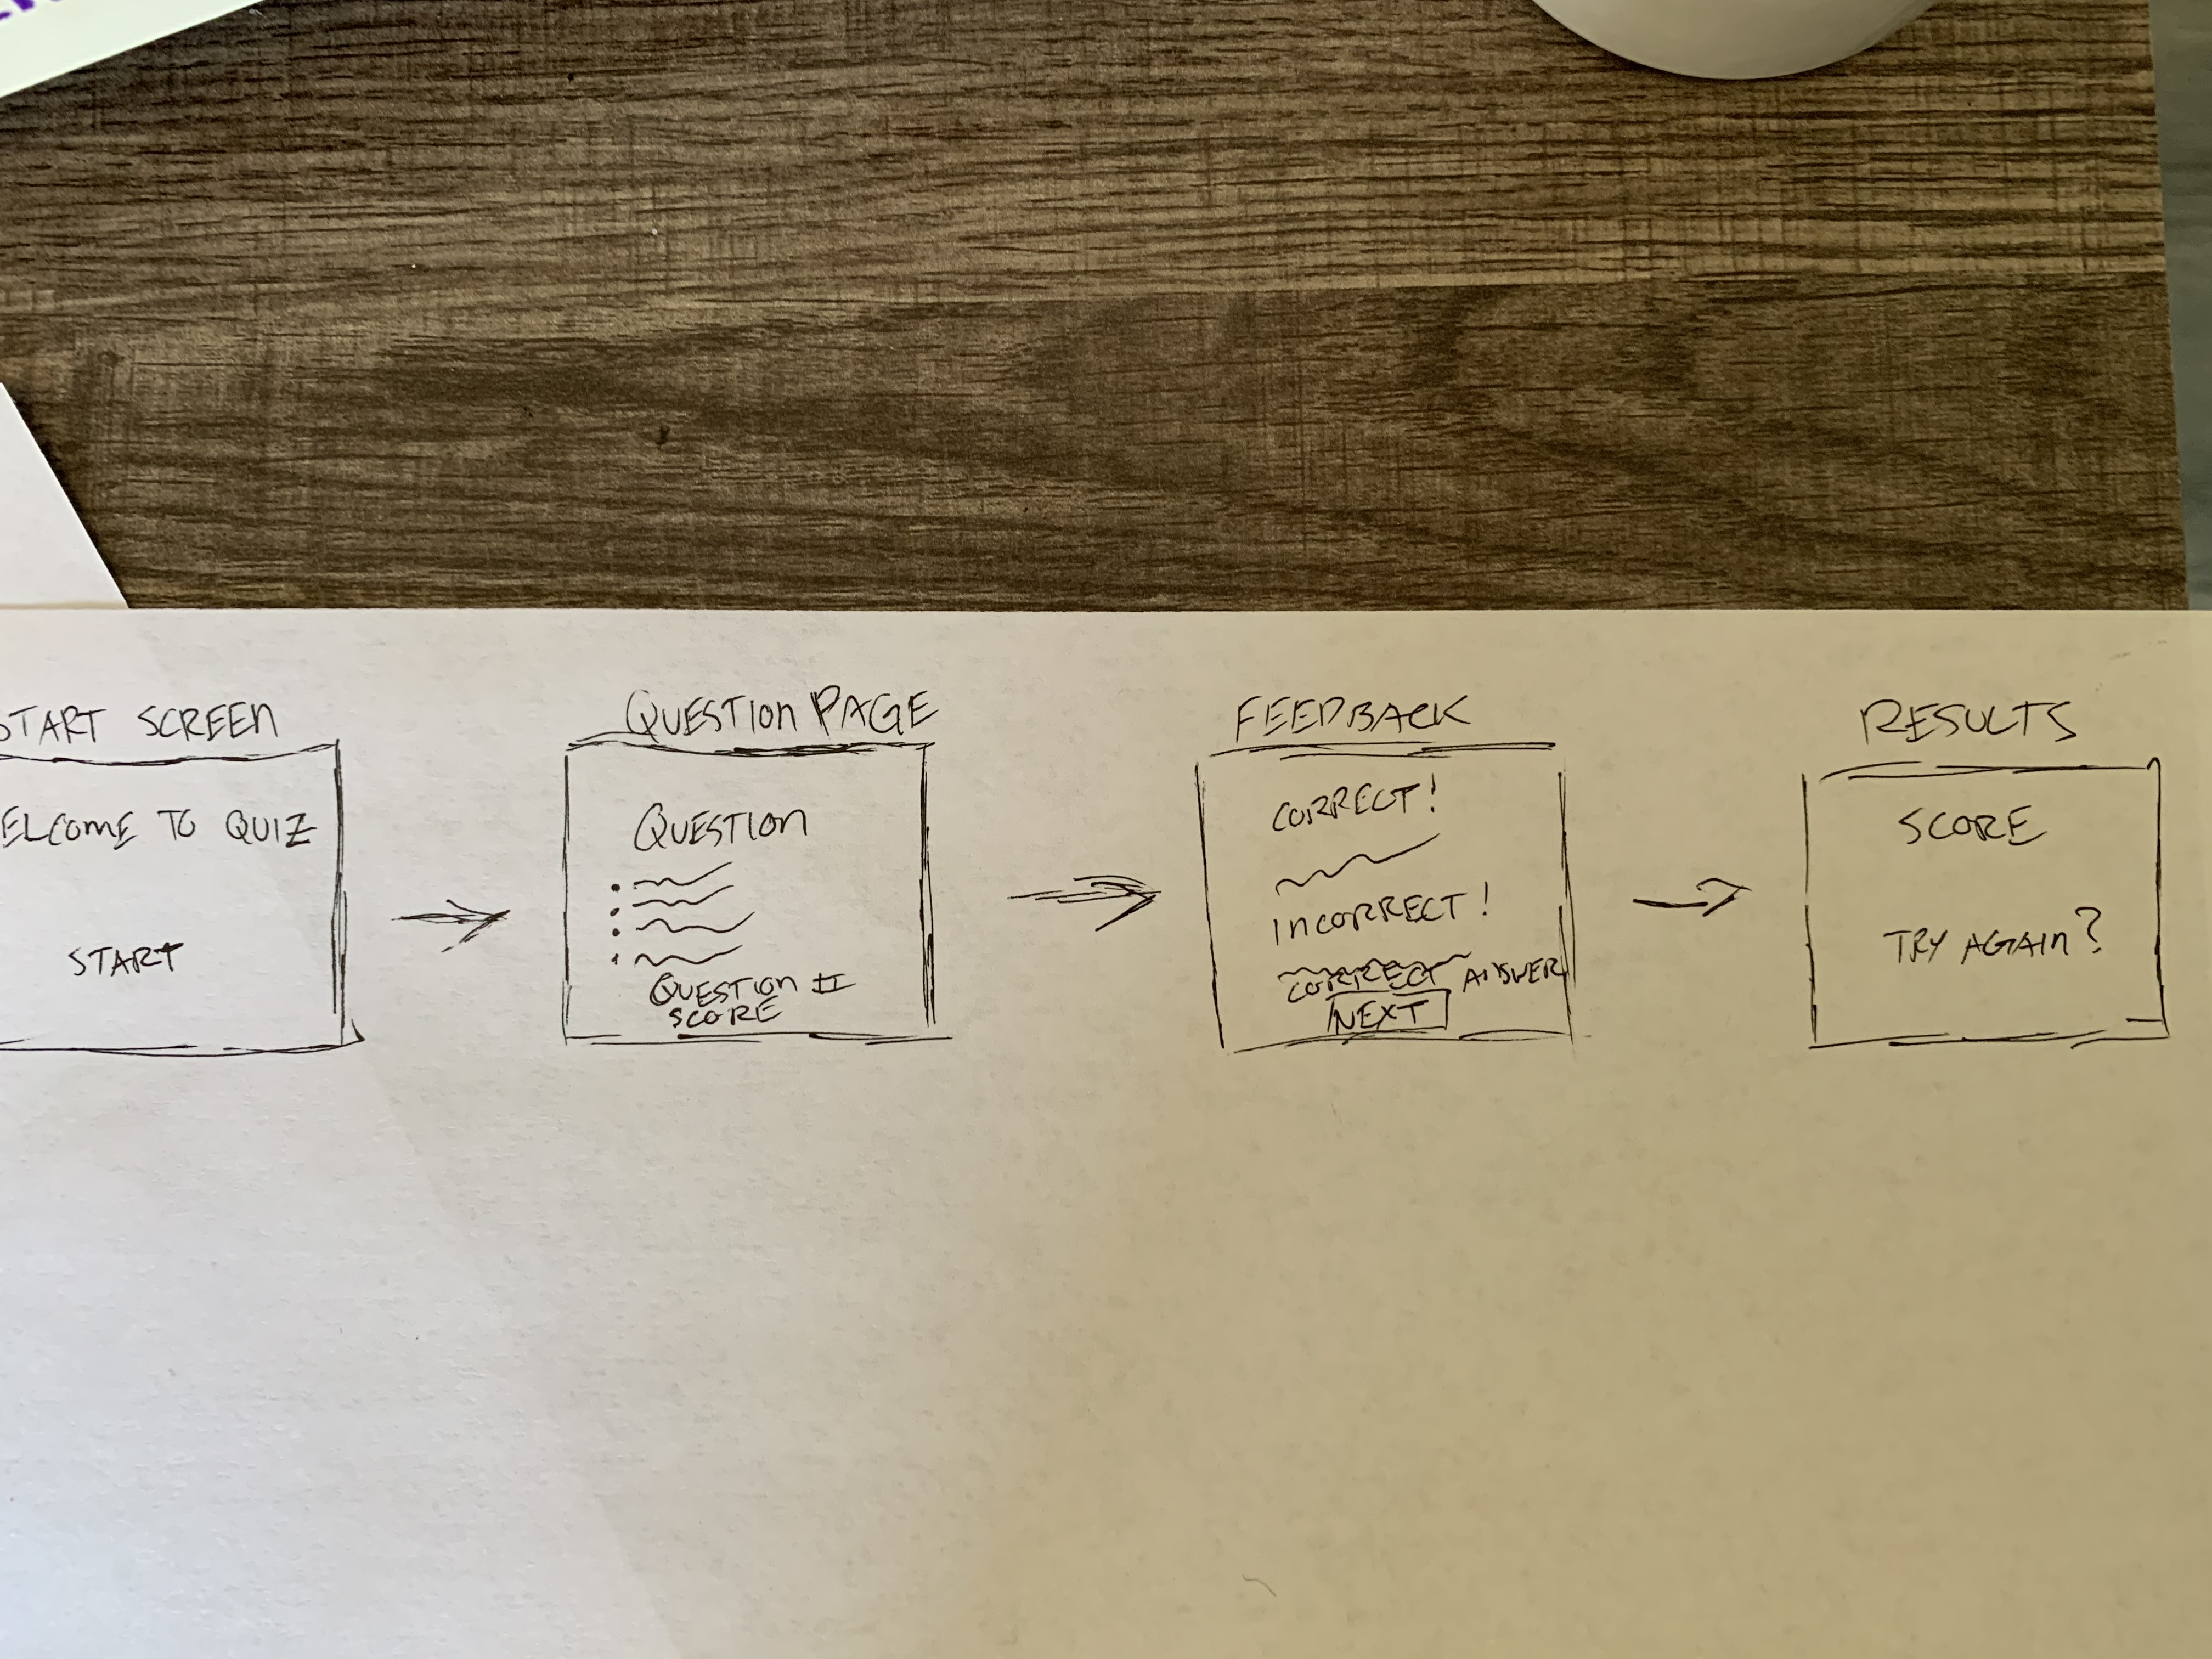 START SCREEN
ELCOME TO QUIZ
START
QUESTION PAGE
QUESTION
QUESTION #
SCORE
FEEDBACK
CORRECT!
INCORRECT!
CORRECT ANSWER
NEXT
RESULTS
SCORE
TRY AGAIN?